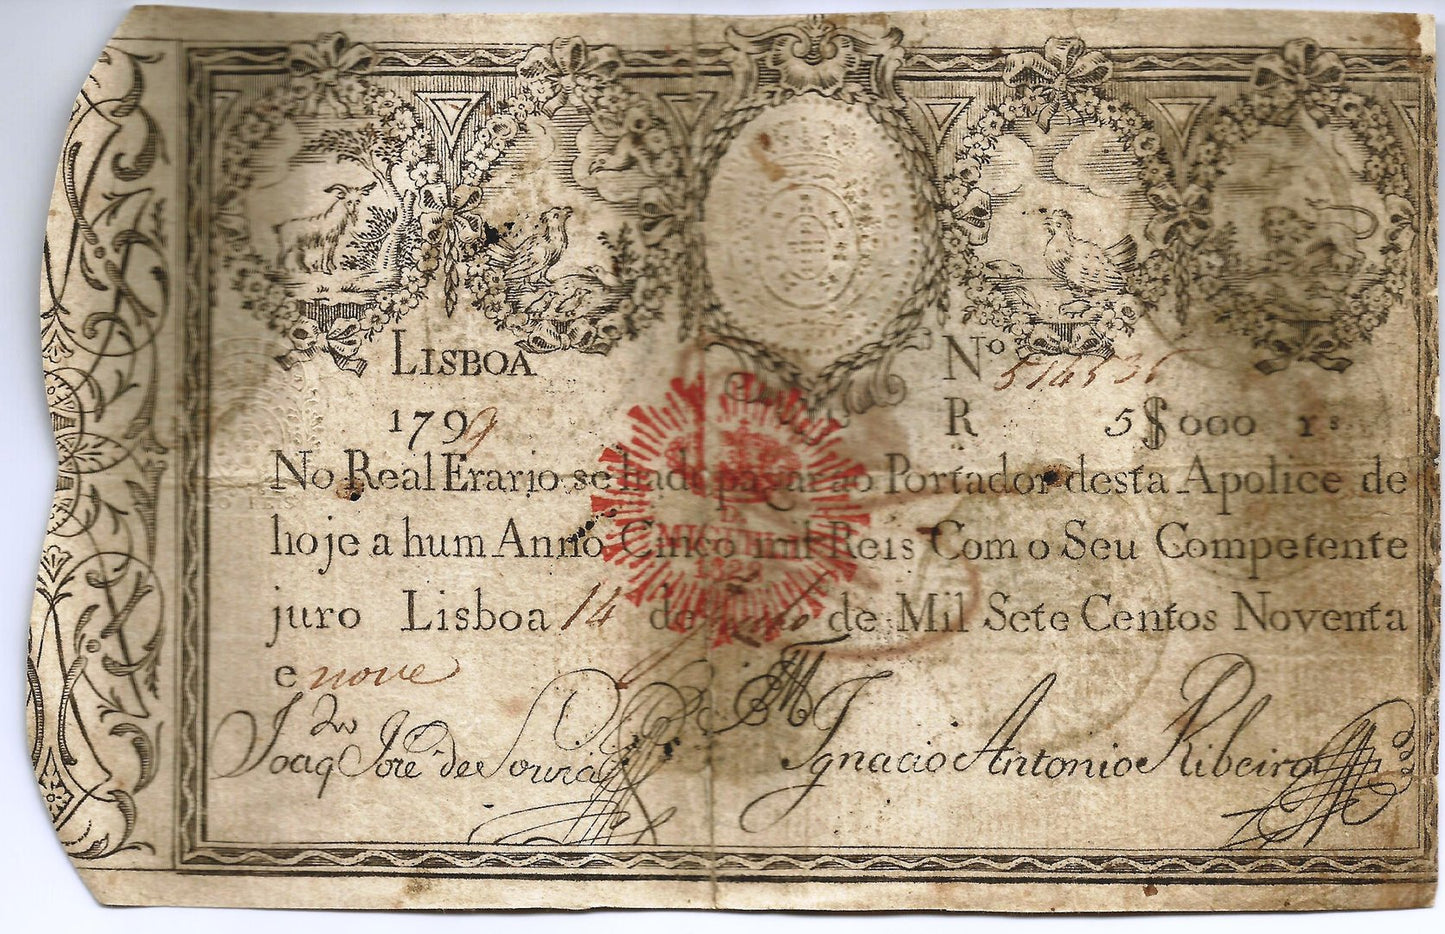 LISBOA
1799
Nº 514536
R 5$000 rs
No Real Erario se hade pagar ao Portador desta Apolice de
hoje a hum Anno Cinco mil Reis Com o Seu Competente
juro Lisboa 14 de de Mil Sete Centos Noventa
e nove
Joaqm José de Souza
Ignacio Antonio Ribeiro